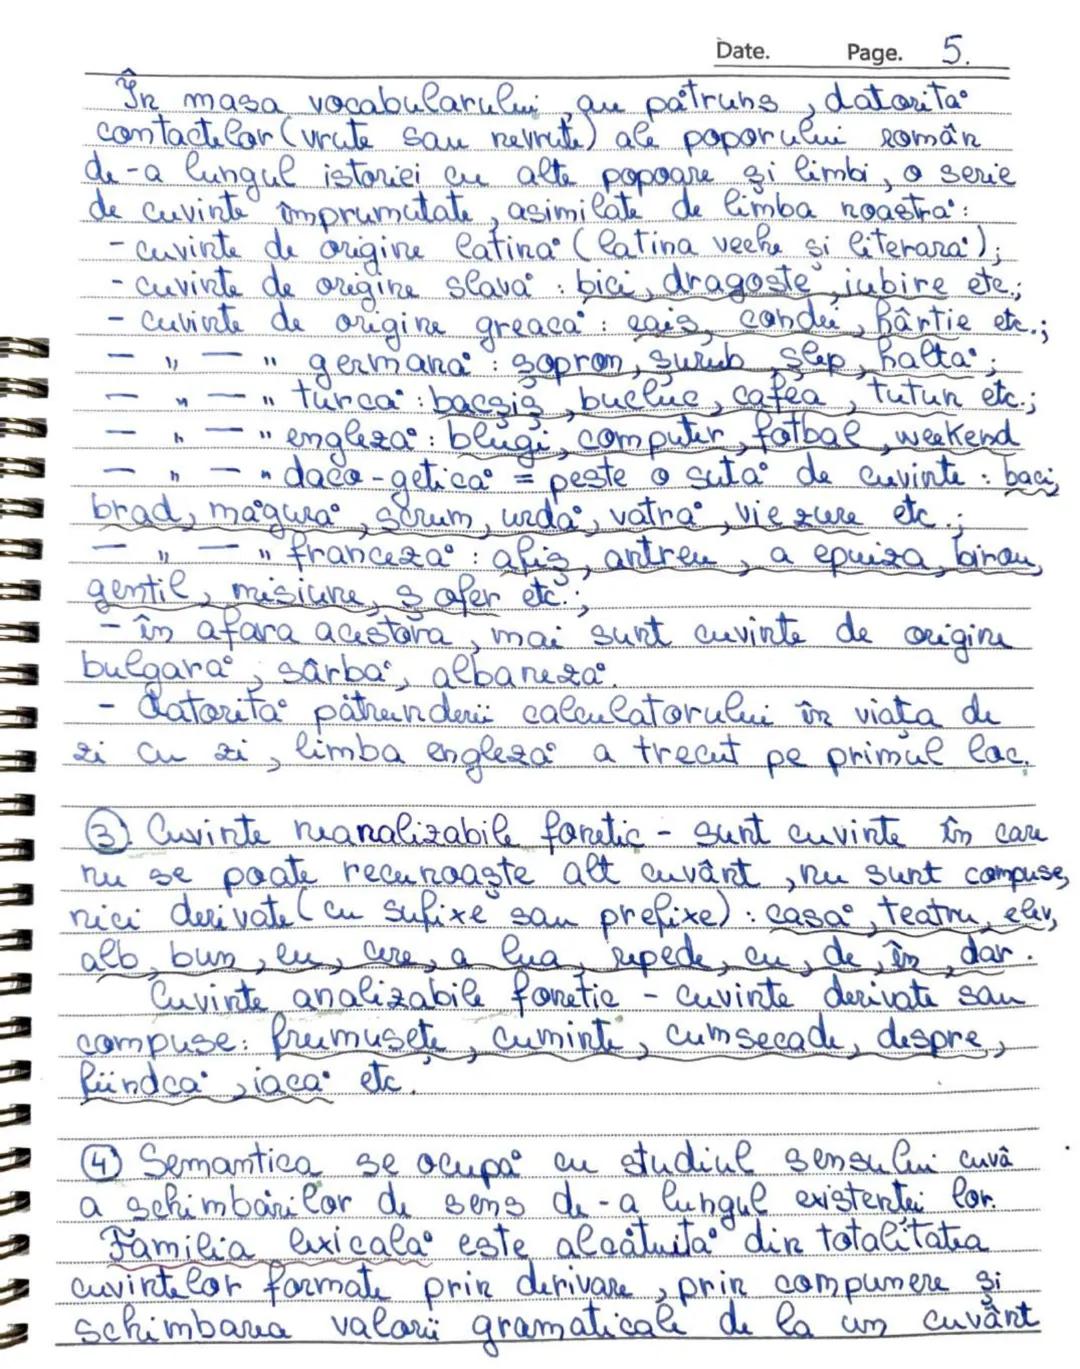 Date. Page. 5.
În masa vocabularului au pătruns, datorită
contactelor (vrute sau nevrute) ale poporului român
de-a lungul istoriei cu alte popoare și limbi, o serie
de cuvinte împrumutate, asimilate de limba noastră:
- cuvinte de origine latină (latina veche și literară);
- cuvinte de origine slavă: bici, dragoste, iubire etc.;
- cuvinte de origine greacă: cais, condei, hârtie etc.;
- " - " germană: șopron, șurub, șlep, haltă;
- " - " turcă: bacșiș, bucluc, cafea, tutun etc.;
- " - " engleză: blugi, computer, fotbal, weekend
- " - " daco-getică = peste o sută de cuvinte: baci,
brad, măgură, scrum, urdă, vatră, viezure etc.;
- " - " franceză: afiș, antreu, a epuiza, birou,
gentil, misiune, șofer etc.;
- în afara acestora, mai sunt cuvinte de origine
bulgară, sârbă, albaneză.
- Datorită pătrunderii calculatorului în viața de
zi cu zi, limba engleză a trecut pe primul loc.
3. Cuvinte neanalizabile fonetic - sunt cuvinte în care
nu se poate recunoaște alt cuvânt, nu sunt compuse,
nici derivate (cu sufixe sau prefixe): casă, teatru, elev,
alb, bun, eu, cere, a lua, repede, cu, de, în, dar.
Cuvinte analizabile fonetic - cuvinte derivate sau
compuse: frumusețe, cuminte, cumsecade, despre,
fiindcă, iacă etc.
4 Semantica se ocupă cu studiul sensului cuvâ
a schimbărilor de sens de-a lungul existenței lor.
Familia lexicală este alcătuită din totalitatea
cuvintelor formate prin derivare, prin compunere și
schimbarea valorii gramaticale de la un cuvânt